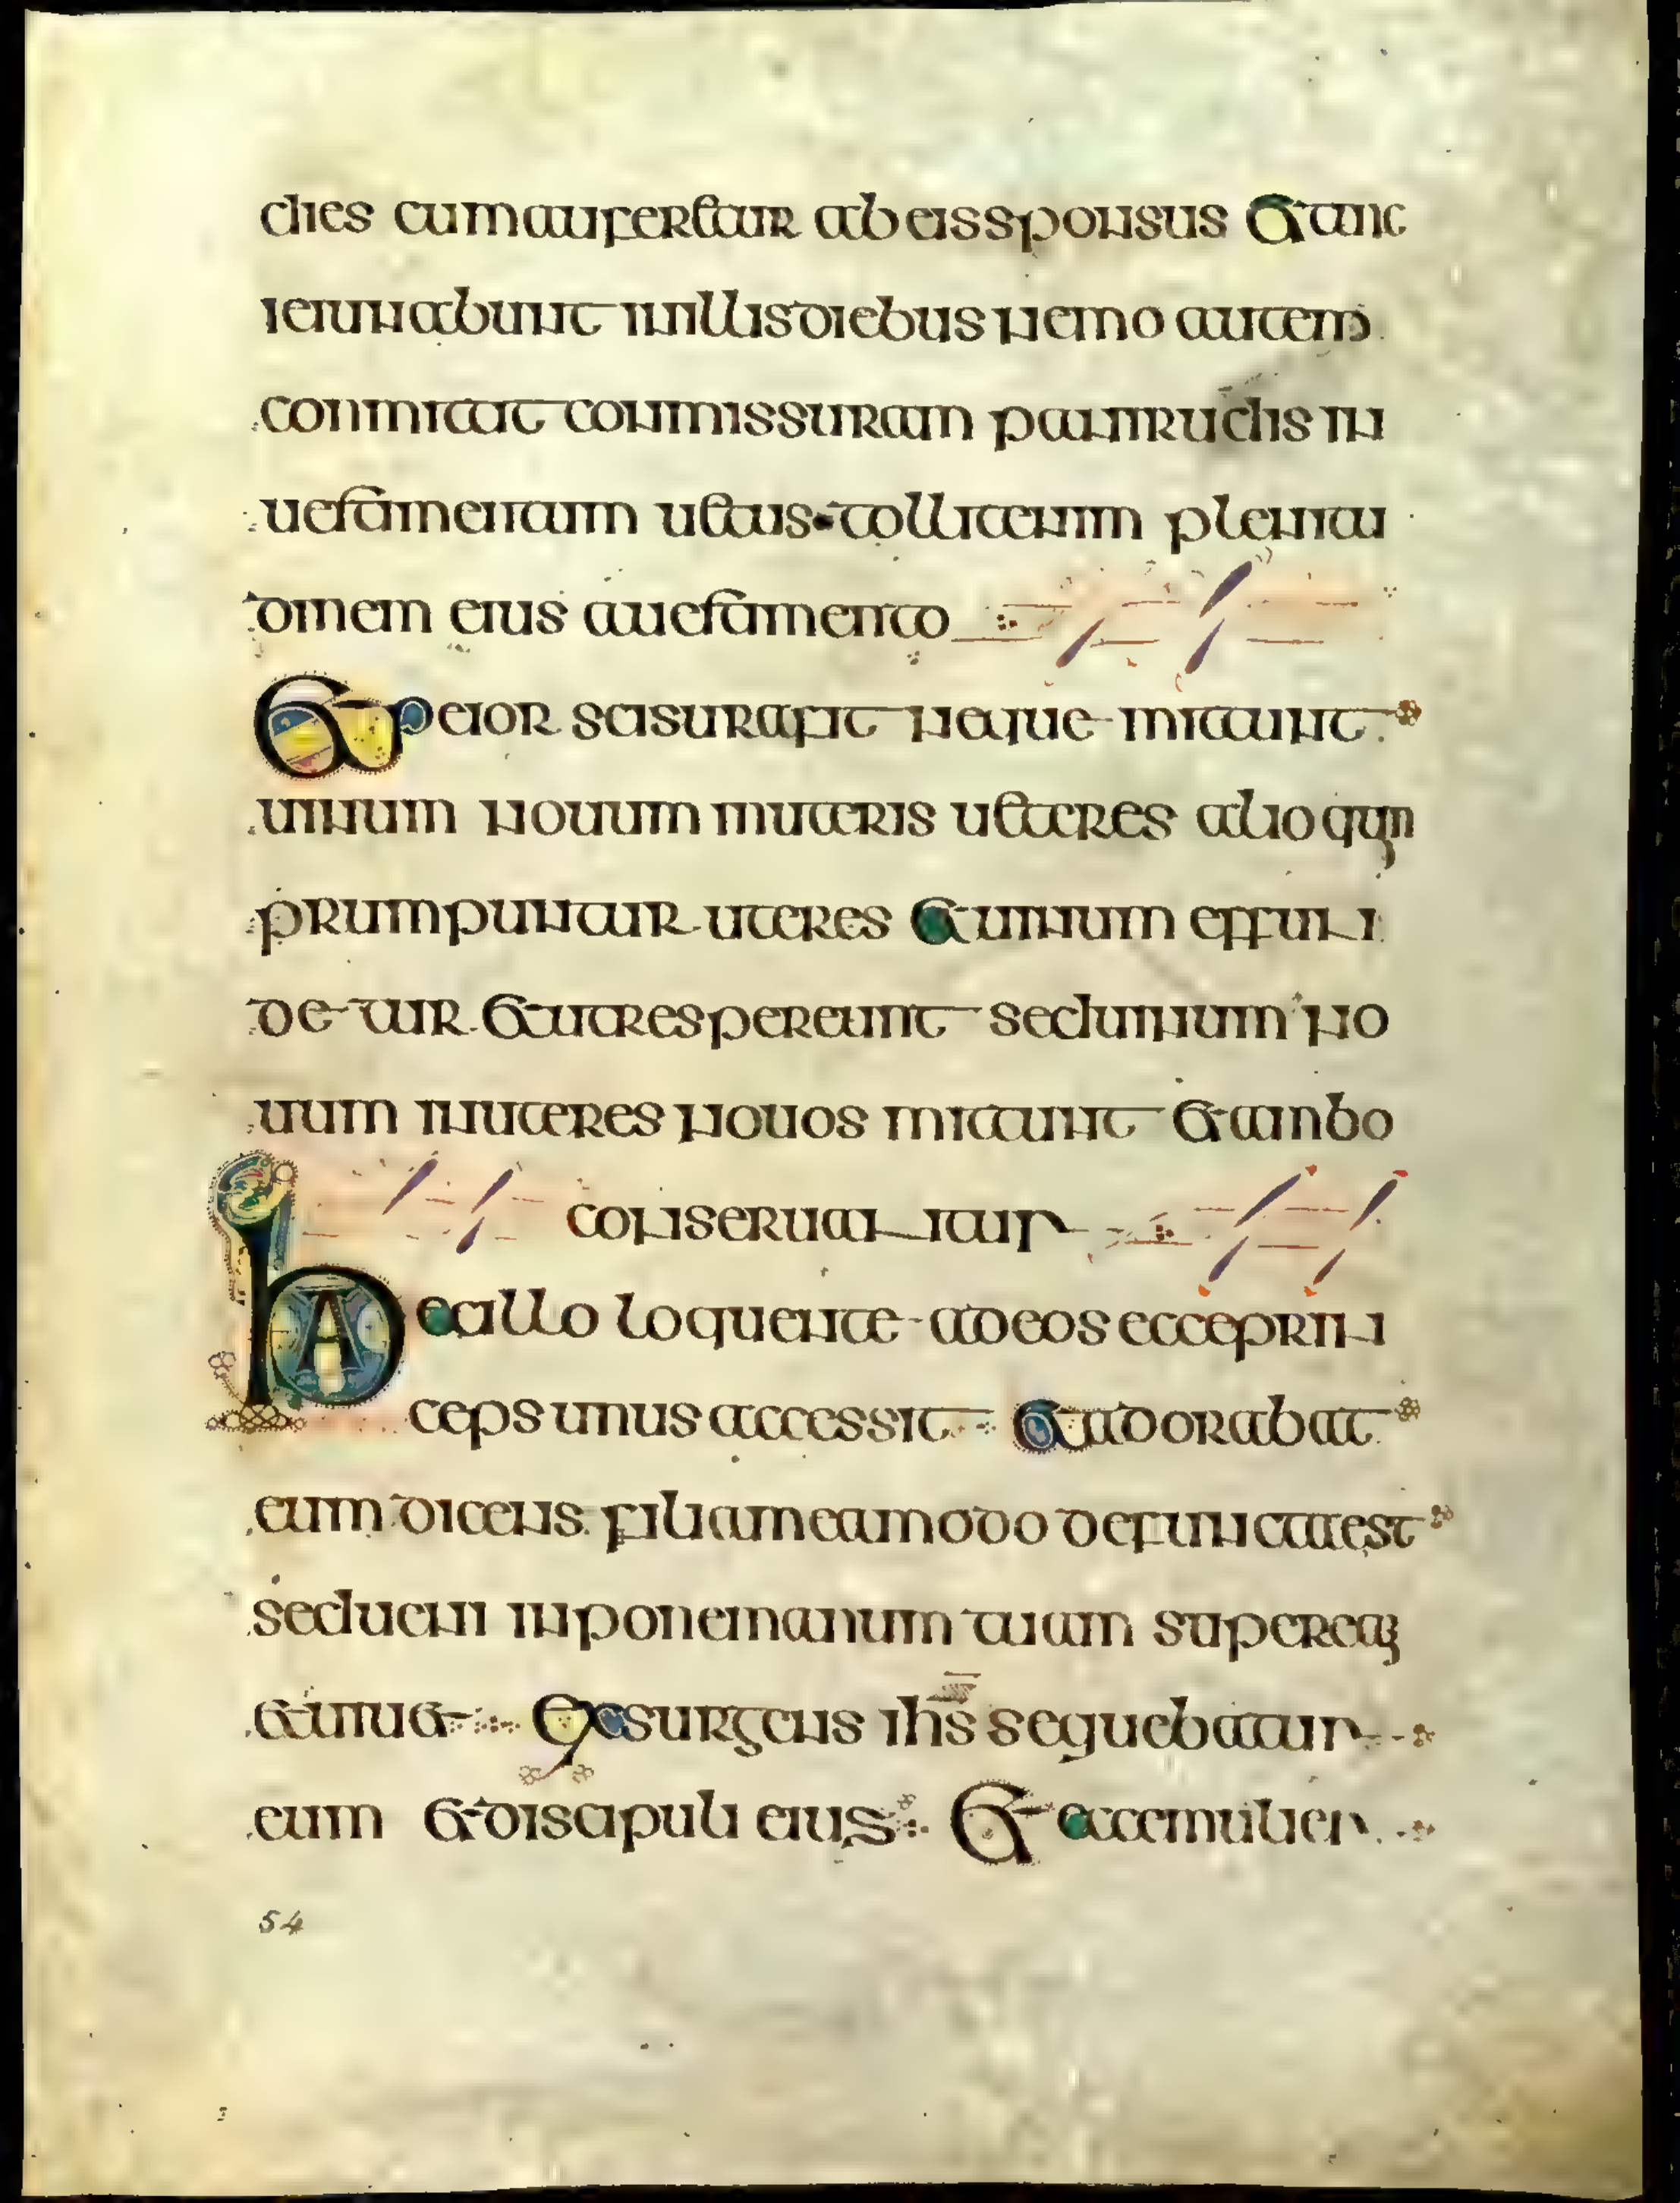 dies cum auferetur ab eis sponsus et tunc
ieiunabunt in illis diebus nemo autem
conmitat conmissuram panni rudis in
uestamentum uetus tollit enim pleni tu
dinem eius auestamento
Et peior scisura fit neque mittunt
uinum nouum in uteris ueteres alio quin
prumpuntur uteres et uinum effun
detur et utres pereunt sed uinum no
uum in uteres nouos mittunt et ambo
conseruantur
Haec illo loquente ad eos ecce prin
ceps unus accessit et adorabat
eum dicens filia mea modo defuncta est
sed ueni inpone manum tuam super eam
et uiuet Exsurgens ihs sequebatur
eum et discipuli eius Et ecce mulier
54